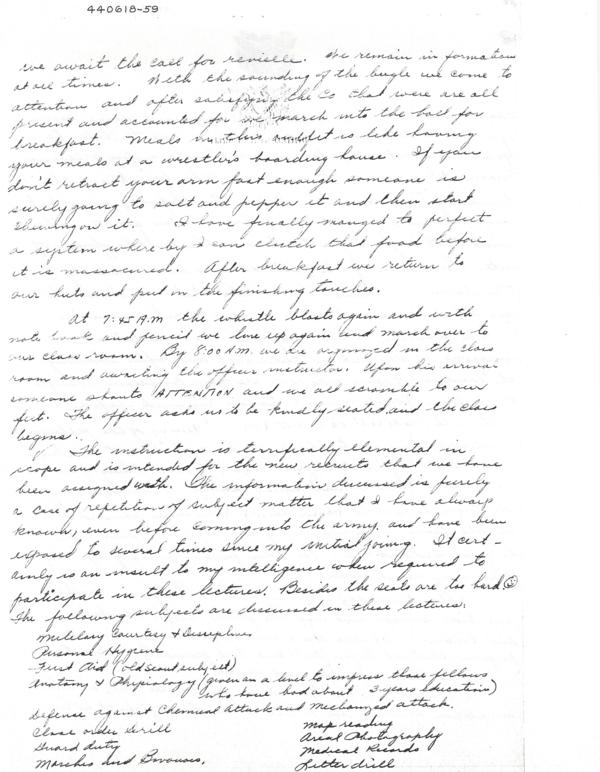 440618-59
we await the call for revielle. We remain in formation
at all times. With the sounding of the bugle we come to
attention and after satisfying the Co that were are all
present and accounted for we march into the hall for
breakfast. Meals in this outfit is like having
your meals at a wrestler's boarding house. If you
don't retract your arm fast enough someone is
surely going to salt and pepper it and then start
chewing on it. I have finally manged to perfect
a system where by I can clutch that food before
it is massacured. After breakfast we return to
our huts and put on the finishing touches.
At 7:45 A.M the whistle blasts again and with
note book and pencil we line up again and march over to
our class room. By 8:00 A.M. we are arranged in the class
room and awaiting the officer instructor. Upon his arrival
someone shouts ATTENTION and we all scramble to our
feet. The officer asks us to be kindly seated and the class
begins.
The instruction is terrifically elemental in
scope and is intended for the new recruits that we have
been assigned with. The information discussed is purely
a case of repetition of subject matter that I have always
known, even before coming into the army, and have been
exposed to several times since my initial joing. It cert-
ainly is an insult to my intelligence when required to
participate in these lectures. Besides the seats are too hard
The following subjects are discussed in these lectures:
Military Courtesy & Disepline
Personal Hygiene
First Aid (old scout subject)
Anatomy & Physiology (given on a level to impress those fellows
who have had about 3 years education)
Defense against Chemical Attack and Mechanized attack.
Close order Drill
Map reading
Guard duty
Areal Photography
Marches and Bivouacs.
Medical Records
Litter drill